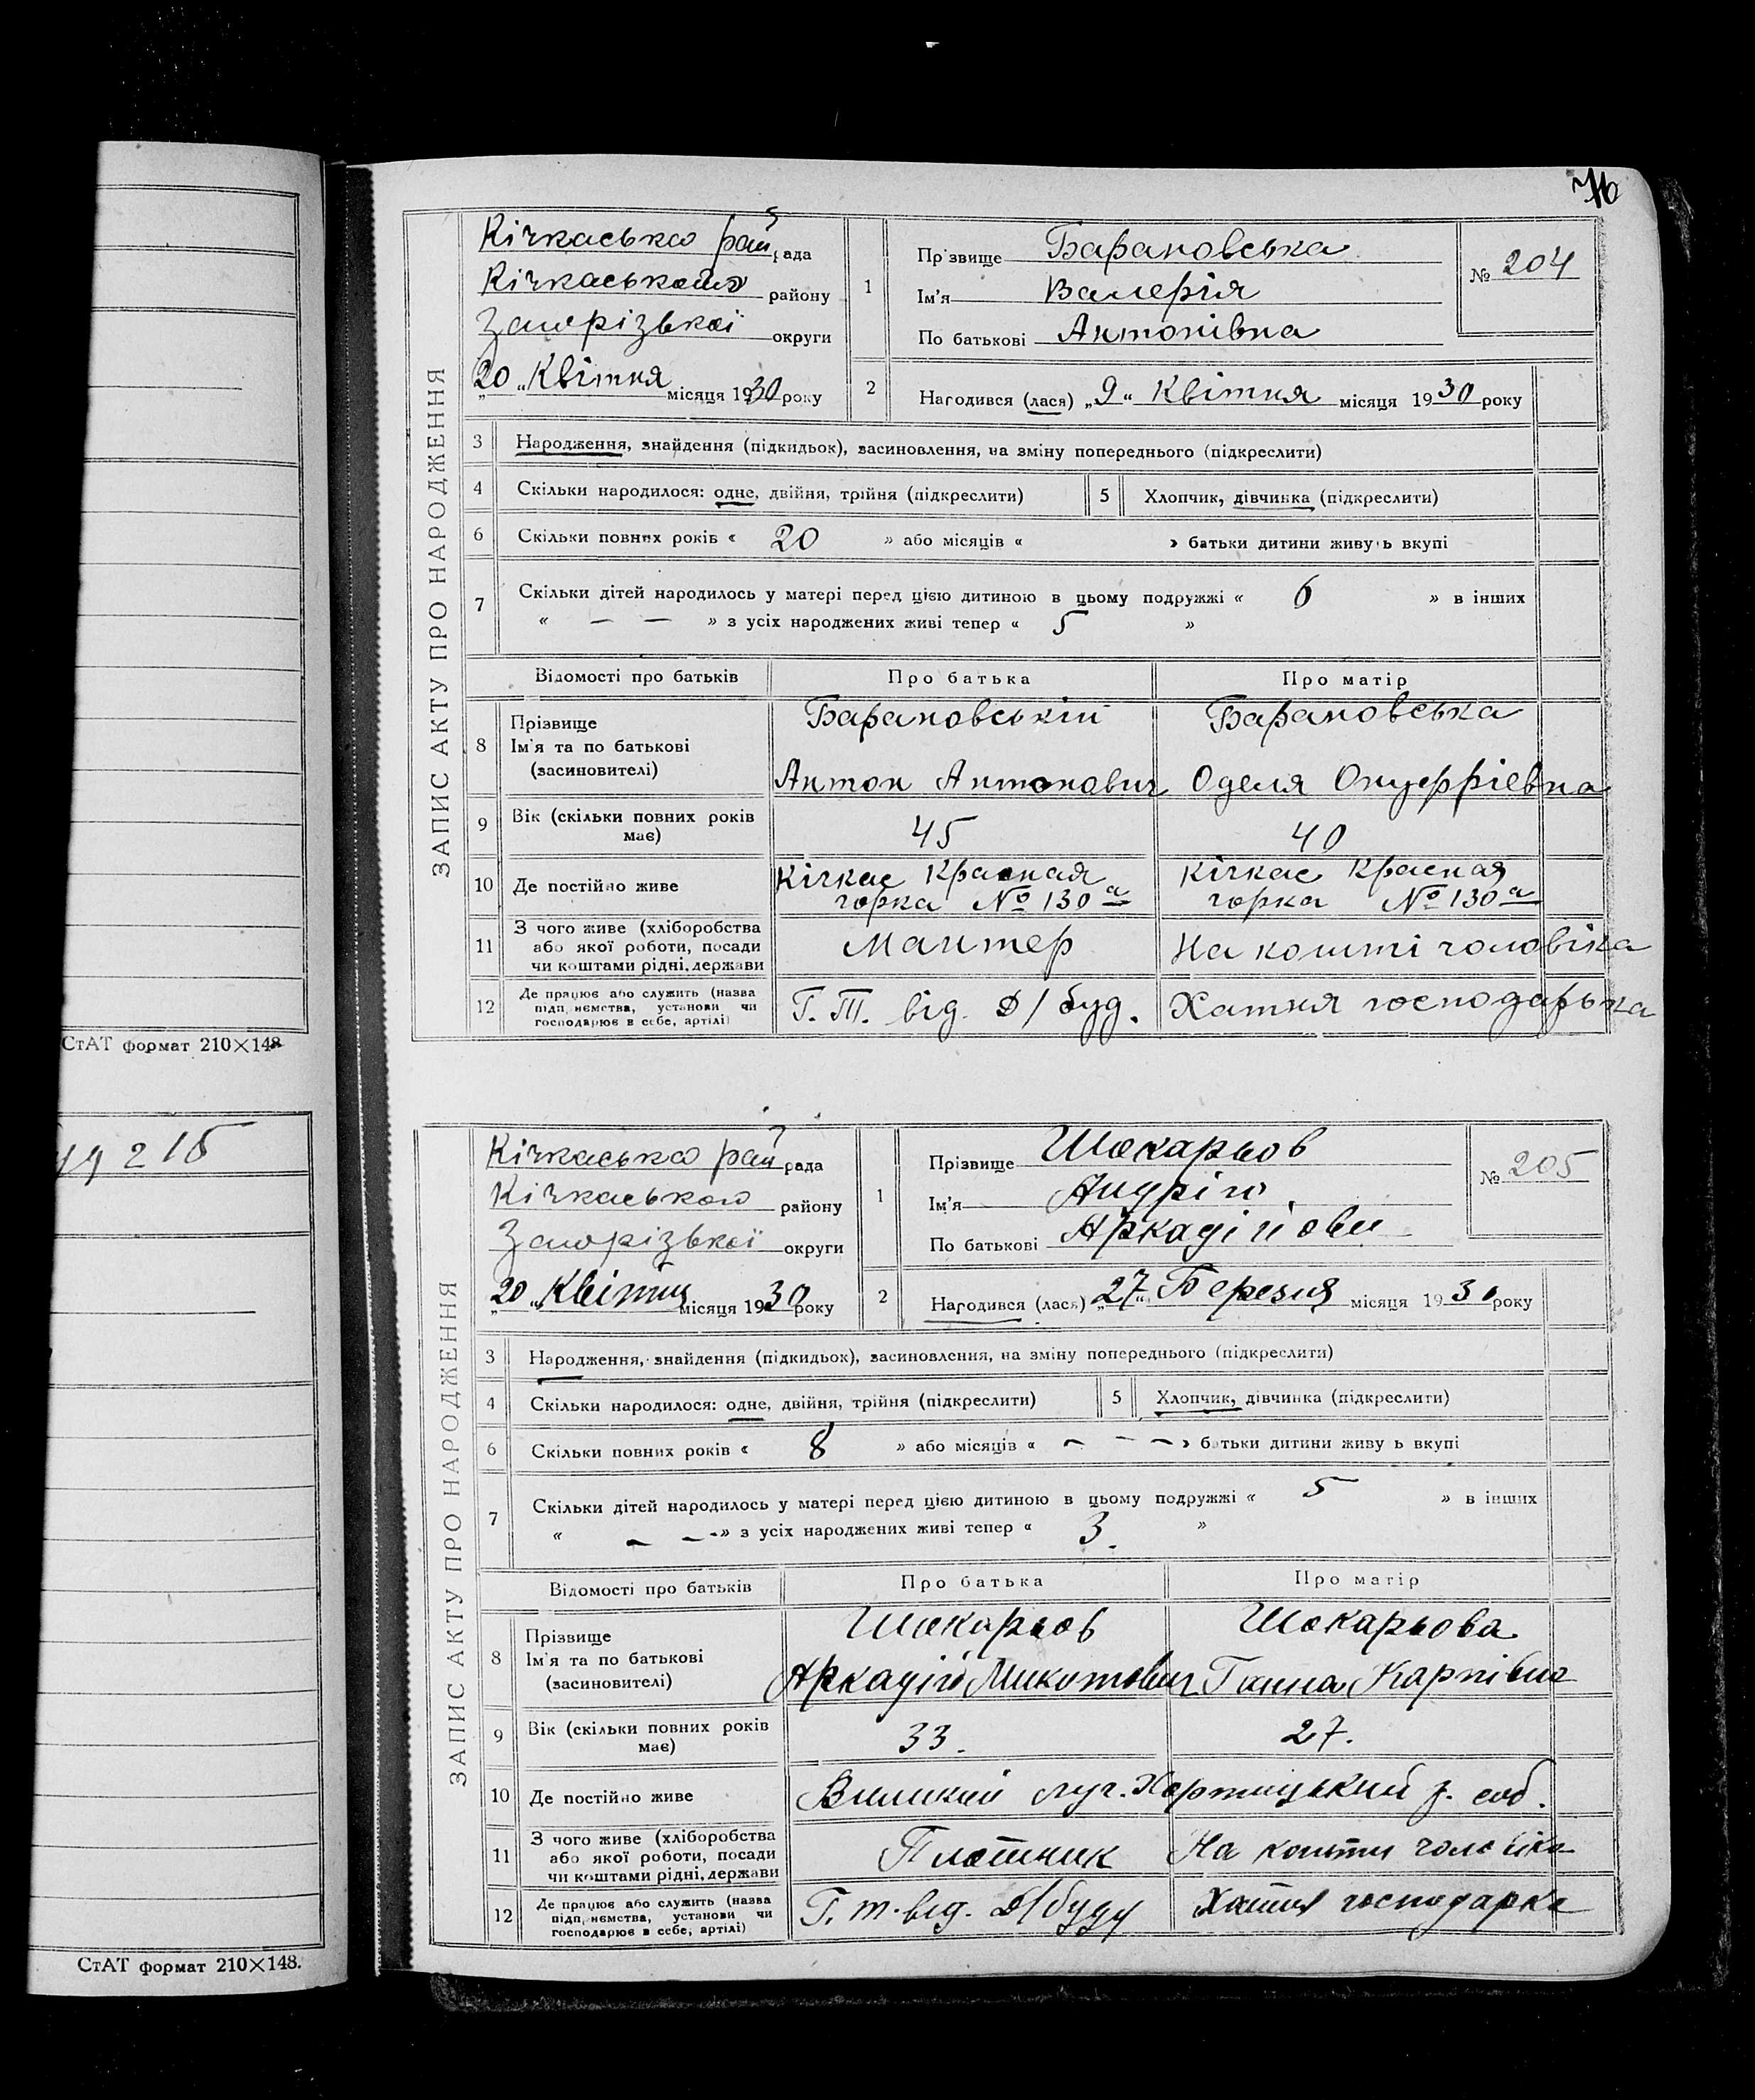 76
ЗАПИС АКТУ ПРО НАРОДЖЕННЯ
Кічкаська рай рада
Кічкаського району
Запорізької округи
„20„ Квітня місяця 1930 року
1
Прізвище Барановська
Ім'я Валерія
По батькові Антонівна
№ 204
2 Народився (лася) „9“ Квітня місяця 1930 року
3 Народження, знайдення (підкидьок), засиновлення, на зміну попереднього (підкреслити)
4 Скільки народилося: одне, двійня, трійня (підкреслити) 5 Хлопчик, дівчинка (підкреслити)
6 Скільки повних років « 20 » або місяців « » батьки дитини живуть вкупі
7 Скільки дітей народилось у матері перед цією дитиною в цьому подружжі « 6 » в інших
« — — » з усіх народжених живі тепер « 5 »
Відомості про батьків Про батька Про матір
8 Прізвище
Ім'я та по батькові
(засиновителі)
Барановській
Антон Антонович
Барановська
Оделя Онуфріевна
9 Вік (скільки повних років має) 45 40
10 Де постійно живе
Кічкас Красная
горка № 130 а
Кічкас Красная
горка № 130 а
11 З чого живе (хліборобства
або якої роботи, посади
чи коштами рідні, держави
Мантер На кошті чоловіка
12 Де працює або служить (назва
підприємства, установи чи
господарює в себе, артілі)
Г. Т. від. Д/буд. Хатня господарька
СтАТ формат 210×148
ЗАПИС АКТУ ПРО НАРОДЖЕННЯ
Кічкаська рай рада
Кічкаського району
Запорізької округи
„20„ Квітня місяця 1930 року
1
Прізвище Шокарьов
Ім'я Андрій
По батькові Аркадійови
№ 205
2 Народився (лася) „27“ Березня місяця 1930 року
3 Народження, знайдення (підкидьок), засиновлення, на зміну попереднього (підкреслити)
4 Скільки народилося: одне, двійня, трійня (підкреслити) 5 Хлопчик, дівчинка (підкреслити)
6 Скільки повних років « 8 » або місяців « — — — » батьки дитини живуть вкупі
7 Скільки дітей народилось у матері перед цією дитиною в цьому подружжі « 5 » в інших
« — — » з усіх народжених живі тепер « 3. »
Відомості про батьків Про батька Про матір
8 Прізвище
Ім'я та по батькові
(засиновителі)
Шокарьов
Аркадій Микитович
Шокарьова
Ганна Карпівна
9 Вік (скільки повних років має) 33. 27.
10 Де постійно живе Великий луг. Хортицький
11 З чого живе (хліборобства
або якої роботи, посади
чи коштами рідні, держави
Плотник На кошти чоловіка
12 Де працює або служить (назва
підприємства, установи чи
господарює в себе, артілі)
Г. т. від. Д/буду Хатня господарка
СтАТ формат 210×148.